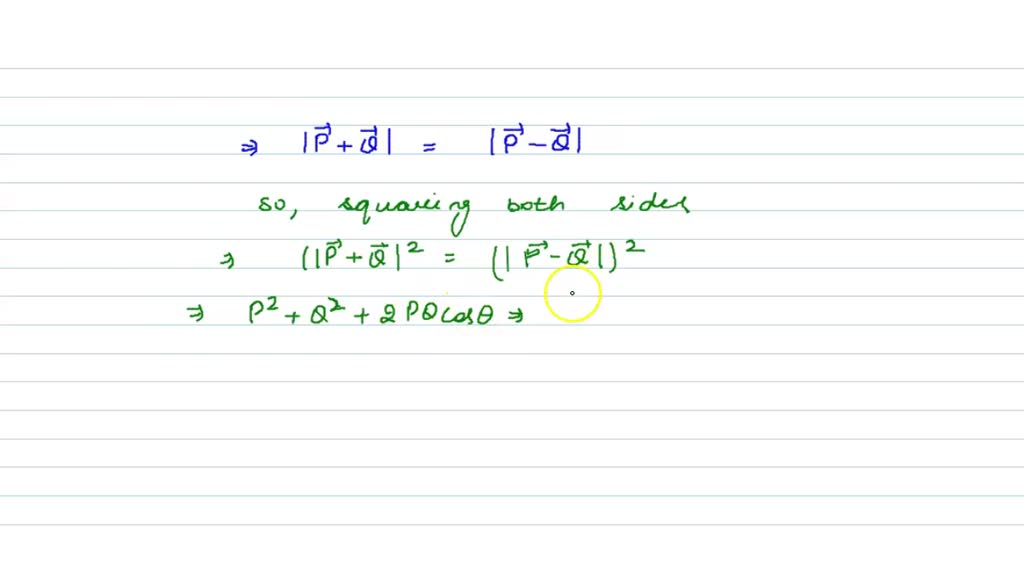 ⇒ |P⃗ + Q⃗| = |P⃗ − Q⃗|
so, squaring both sides
⇒ (|P⃗ + Q⃗|² = (|P⃗ − Q⃗|)²
⇒ P² + Q² + 2PQ cosθ ⇒